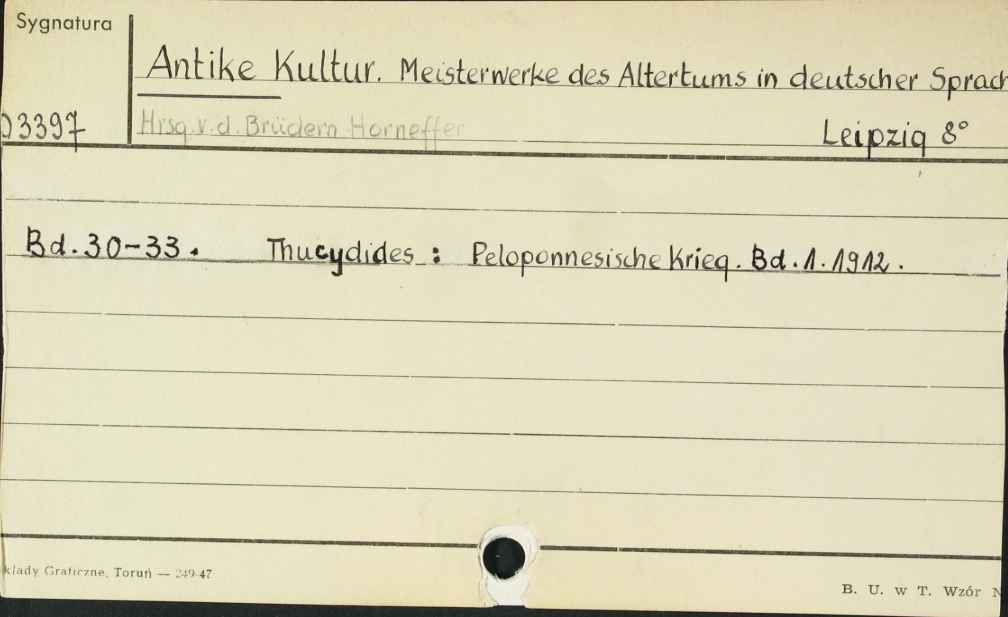 Sygnatura
Antike Kultur. Meisterwerke des Altertums in deutscher Sprach
03397 Hrsg. v. d. Brüdern Horneffer Leipzig 8°
Bd. 30-33. Thucydides: Peloponnesische Krieg. Bd. 1. 1912.
kłady Graficzne, Toruń — 249-47
B. U. w T. Wzór N